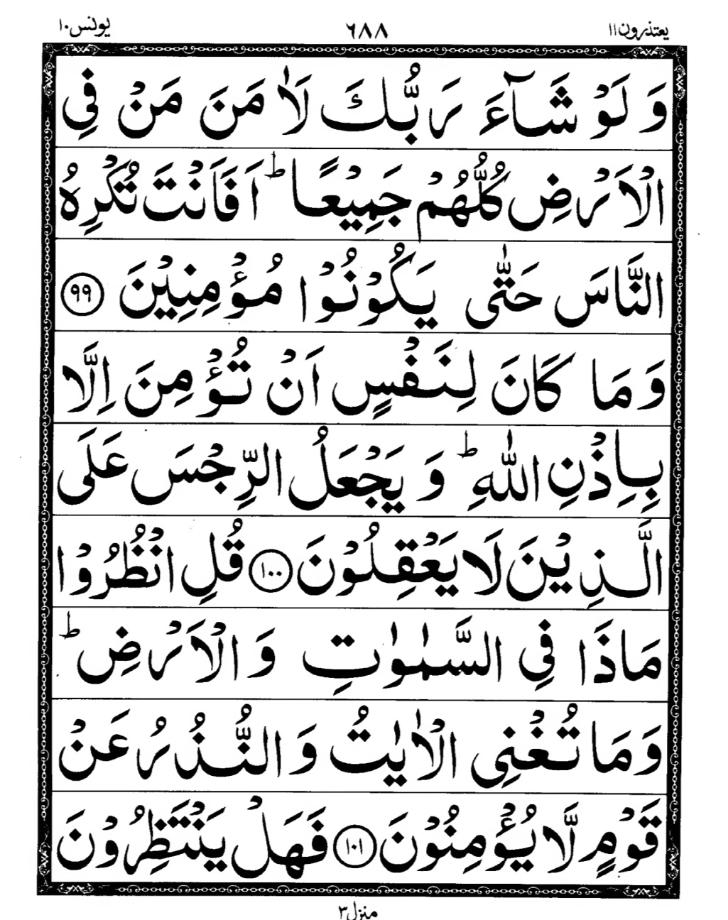 یعتذرون ۱۱ ۶۸۸ یونس ۱۰
وَ لَوۡ شَآءَ رَبُّكَ لَاٰ مَنَ مَنۡ فِی
الۡاَرۡضِ كُلُّهُمۡ جَمِیۡعًا ؕ اَفَاَنۡتَ تُكۡرِهُ
النَّاسَ حَتّٰی یَكُوۡنُوۡا مُؤۡمِنِیۡنَ ﴿۹۹﴾
وَ مَا كَانَ لِنَفۡسٍ اَنۡ تُؤۡمِنَ اِلَّا
بِاِذۡنِ اللّٰهِ ؕ وَ یَجۡعَلُ الرِّجۡسَ عَلَی
الَّذِیۡنَ لَا یَعۡقِلُوۡنَ ﴿۱۰۰﴾ قُلِ انۡظُرُوۡا
مَاذَا فِی السَّمٰوٰتِ وَ الۡاَرۡضِ ؕ
وَ مَا تُغۡنِی الۡاٰیٰتُ وَ النُّذُرُ عَنۡ
قَوۡمٍ لَّا یُؤۡمِنُوۡنَ ﴿۱۰۱﴾ فَهَلۡ یَنۡتَظِرُوۡنَ
منزل ۳